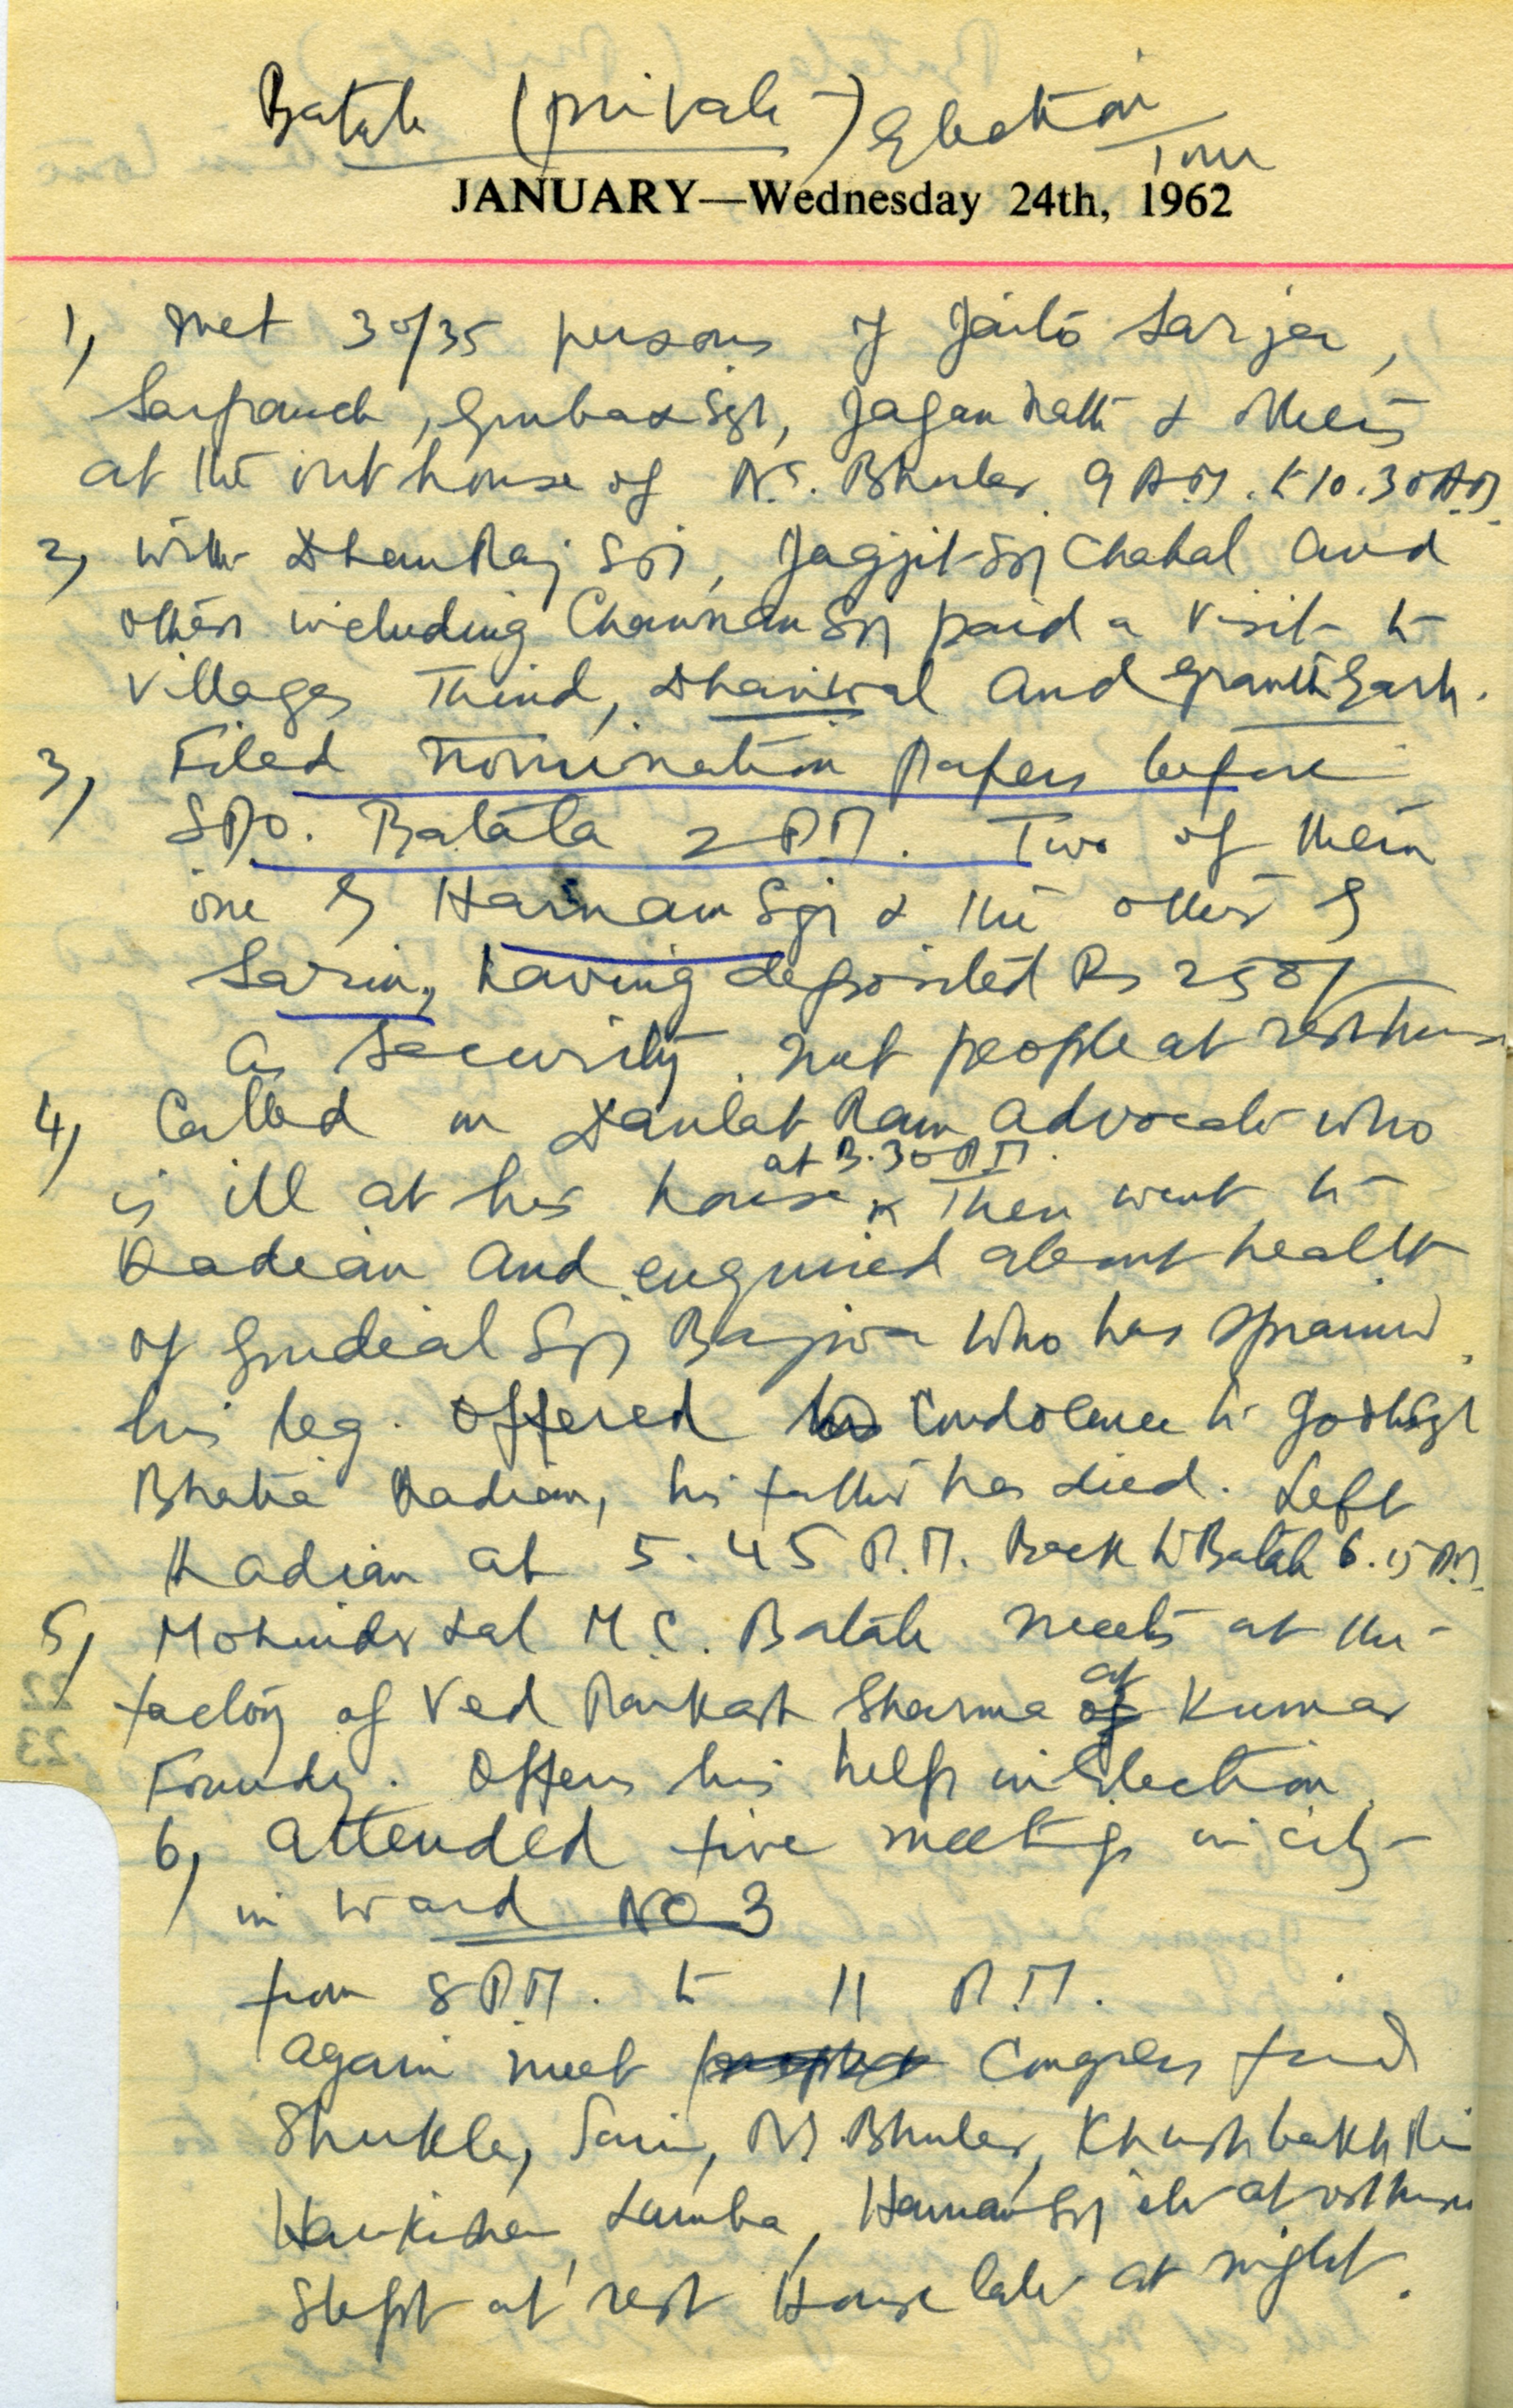 Batala (private) Election
Tour
JANUARY—Wednesday 24th, 1962
1, Met 30/35 persons of Jaito Sarja,
Sarpanch, Gurbax Sgh, Jagan Nath & others
at the out house of N.S. Bhuler 9 A.M. to 10.30 A.M.
2, With Dhanraj Sgh, Jagjit Sgh Chahal and
others including Channan Sgh paid a visit to
villages Thind, Dhariwal and Granthgarh.
3, Filed nomination papers before
SDO. Batala 2 P.M. Two of them
one by Harnam Sgh & the other by
Sarin, having deposited Rs 250/-
as security. Met people at rest house
4, Called on Daulat Ram advocate who
is ill at his house at 3.30 P.M. Then went to
Kadian and enquired about health
of Gurdial Sgh Bajwa who has sprained
his leg. Offered condolence to Jodh Sgh
Bhatia Kadian, his father has died. Left
Kadian at 5.45 P.M. Back to Batala 6.15 P.M.
5, Mohinder Lal M.C. Batala meets at the
factory of Ved Parkash Sharma at Kumar
Foundry. Offers his help in Election.
6, attended five meetings in city
in ward No 3
from 8 P.M. to 11 P.M.
again meet Congress
Shukla, Sarin, N.S. Bhuler, Khushbakht Rai
Harkishan Lumba, Harnam Sgh etc at rest house
Slept at rest House late at night.